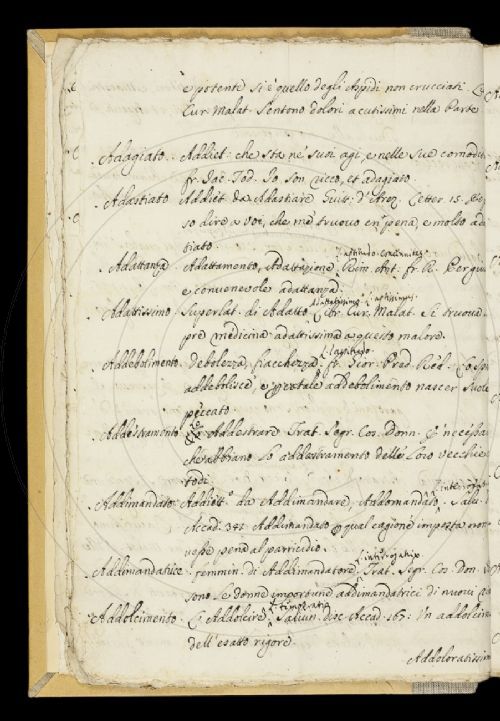 e potente si è quello degli Aspidi non crucciati
Cur. Malat. Sentono dolori acutissimi nella Parte
Adagiato. Addiet: che sta ne' suoi agi, e nelle sue comodità
fr. Iac. Tod. Io son ricco, et adagiato.
Adastiato Addiet: da Adastiare Guit: d'Arez. Letter. 15.
so dire a voi, che me truovo en pena, e molto ada
stiato
Adattanza Adattamento, Adattazione Rim. Ant. fr. R. Perugin
e convenevole adattanza.
Adattissimo Superlat. di Adatto Libr. Cur. Malat. e è truova
pre medicina adattissima a questo malore.
Addebolimento debolezza, fiacchezza. fr. Gior. Pred. Red.
addebolisce, e per tale addebolimento nascer suole
peccato.
Addestramento Addestrare Trat. Segr. Cos. Donn. È necessa
che abbiano lo addestramento delle loro vecchie
Addimandato Addiett. da Addimandare, Addomandato
Accad. 341 Addimandato per qual cagione imposta non
vesse pena al parricidio.
Addimandatrice femmin. di Addimandatore Trat. Segr. Cos. Don.
sono le donne importune addimandatrici di nuovi
Addolcimento L' Addolcire Salvin. disc. Accad. 167: Un addolcim
dell'esatto rigore.
Addoloratissim